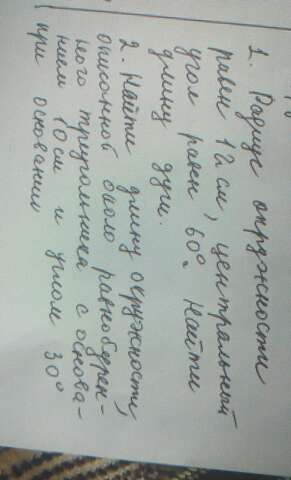 1. Радиус окружности
равен 12 см, центральный
угол равен 60°. Найти
длину дуги.
2. Найти длину окружности,
описанной около равнобедрен-
ного треугольника с основа-
нием 10 см и углом
при основании 30°